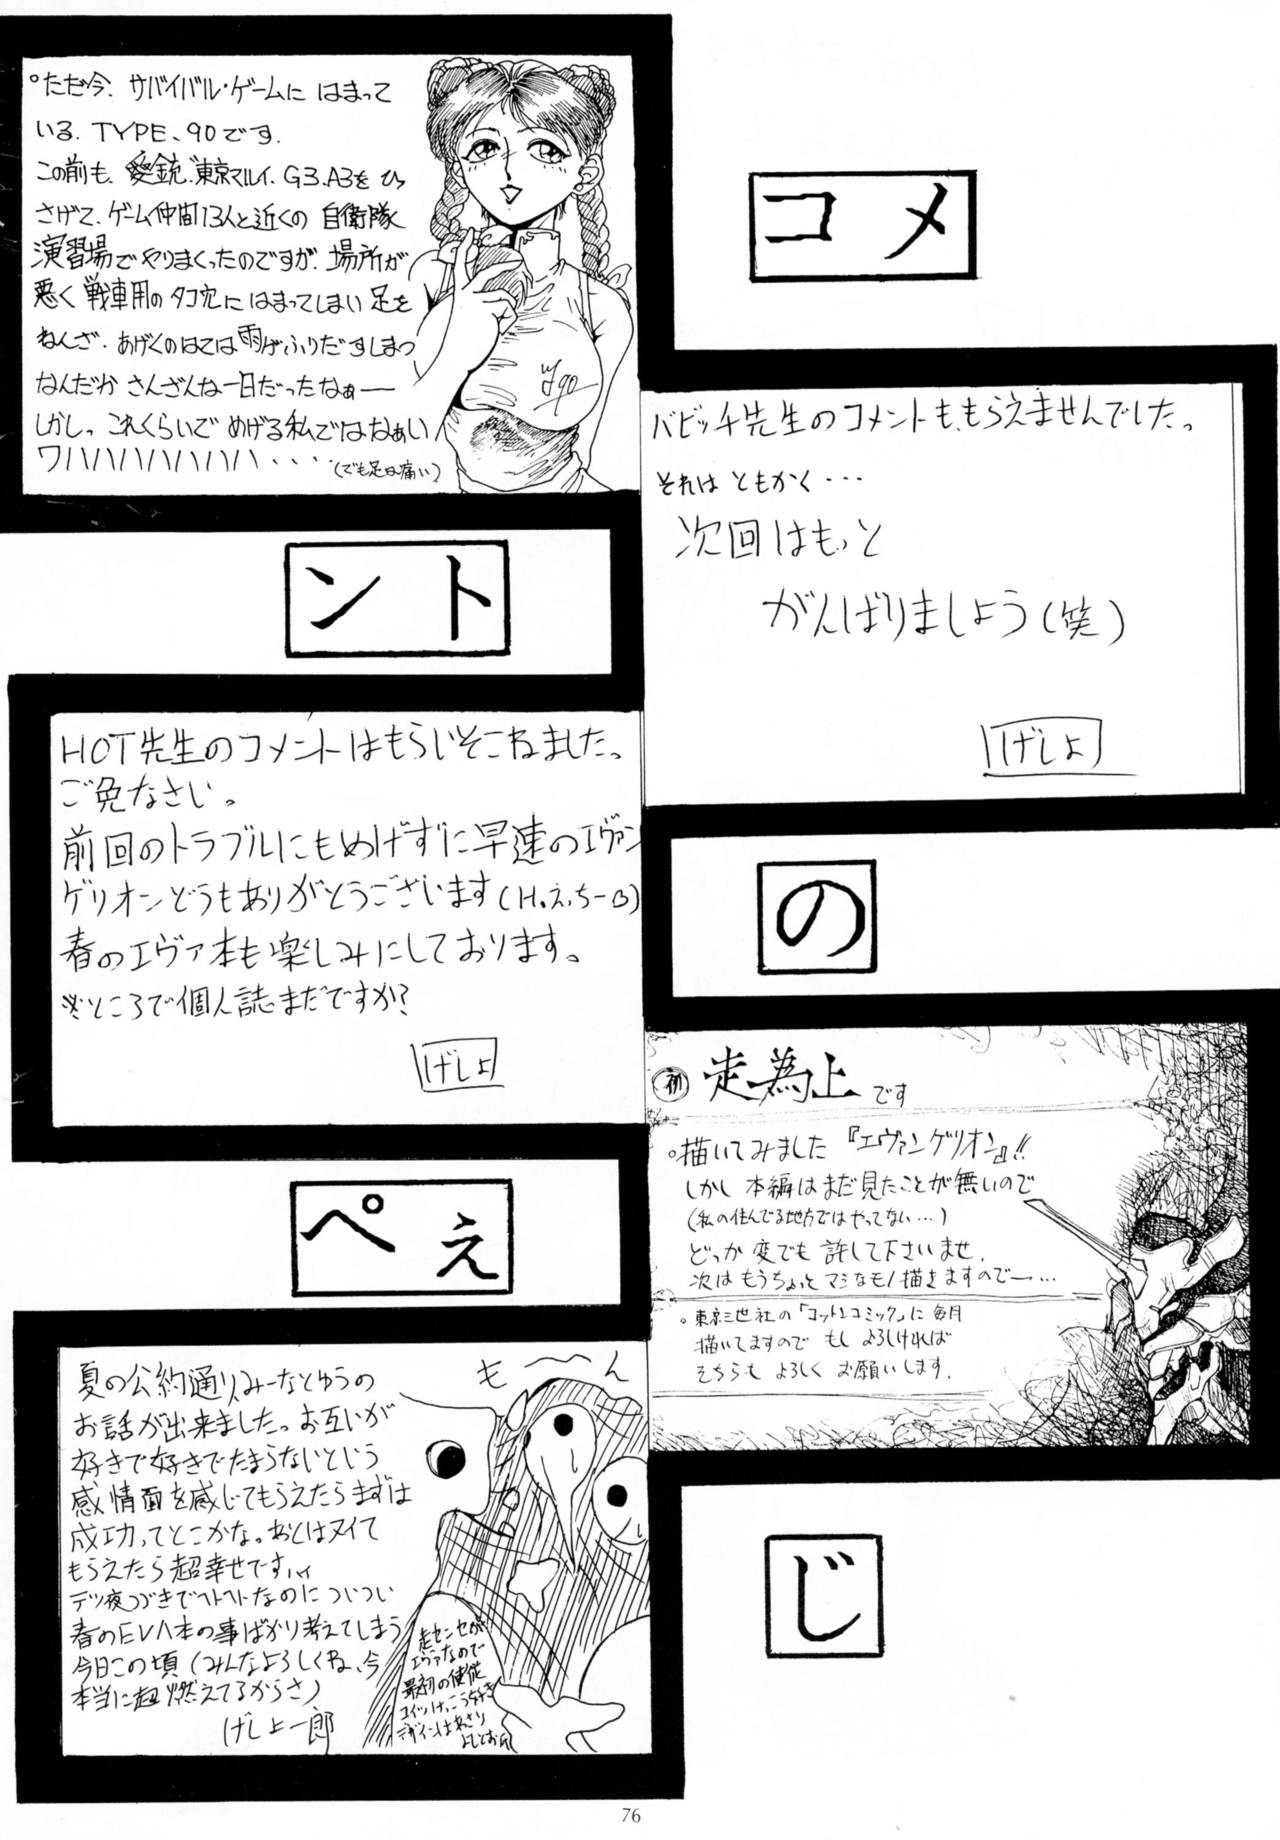 コメ
ント
の
ぺぇ
じ
°ただ今、サバイバル・ゲームに はまって
いる、TYPE、90です。
この前も、愛銃、東京マルイ、G3.A3を ひっ
さげて、ゲーム仲間13人と近くの 自衛隊
演習場でやりまくったのですが、場所が
悪く 戦車用のタコ穴に はまってしまい 足を
ねんざ、あげくのはては雨がふりだすしまつ
なんだか さんざんな一日だったなぁ──
しかしっ これくらいで めげる私ではなぁい
ワハハハハハハハハ・・・・(でも足は痛い)
バビッチ先生のコメントももらえませんでした。
それは ともかく・・・
次回はもっと
がんばりましょう(笑)
げしょ
HOT先生のコメントはもらいそこねました。
ご免なさい。
前回のトラブルにもめげずに早速のエヴァン
ゲリオンどうもありがとうございます(H.ぇ,ちーB)
春のエヴァ本も楽しみにしております。
※ところで個人誌まだですか?
げしょ
初 走為上です
°描いてみました『エヴァンゲリオン』!!
しかし 本編はまだ見たことが無いので
(私の住んでる地方ではやってない…)
どっか変でも 許して下さいませ、
次は もうちょっと マシなモノ描きますのでー…
°東京三世社の「コットンコミック」に 毎月
描いてますので もし よろしければ
そちらも よろしく お願いします。
夏の公約通りみーなとゆうの
お話が出来ました。お互いが
好きで好きでたまらないという
感情面を感じてもらえたらまずは
成功ってとこかな。あとはヌイて
もらえたら超幸せですぃ
テツ夜つづきでヘトヘトなのに ついつい
春のEVA本の事ばかり考えてしまう
今日この頃(みんなよろしくね、今
本当に超燃えてるからさ)
げしょ一郎
もーん
走センセが
エヴァなので
最初の使徒
コイツけっこう好き
デザインはあさり
よしとお氏
76